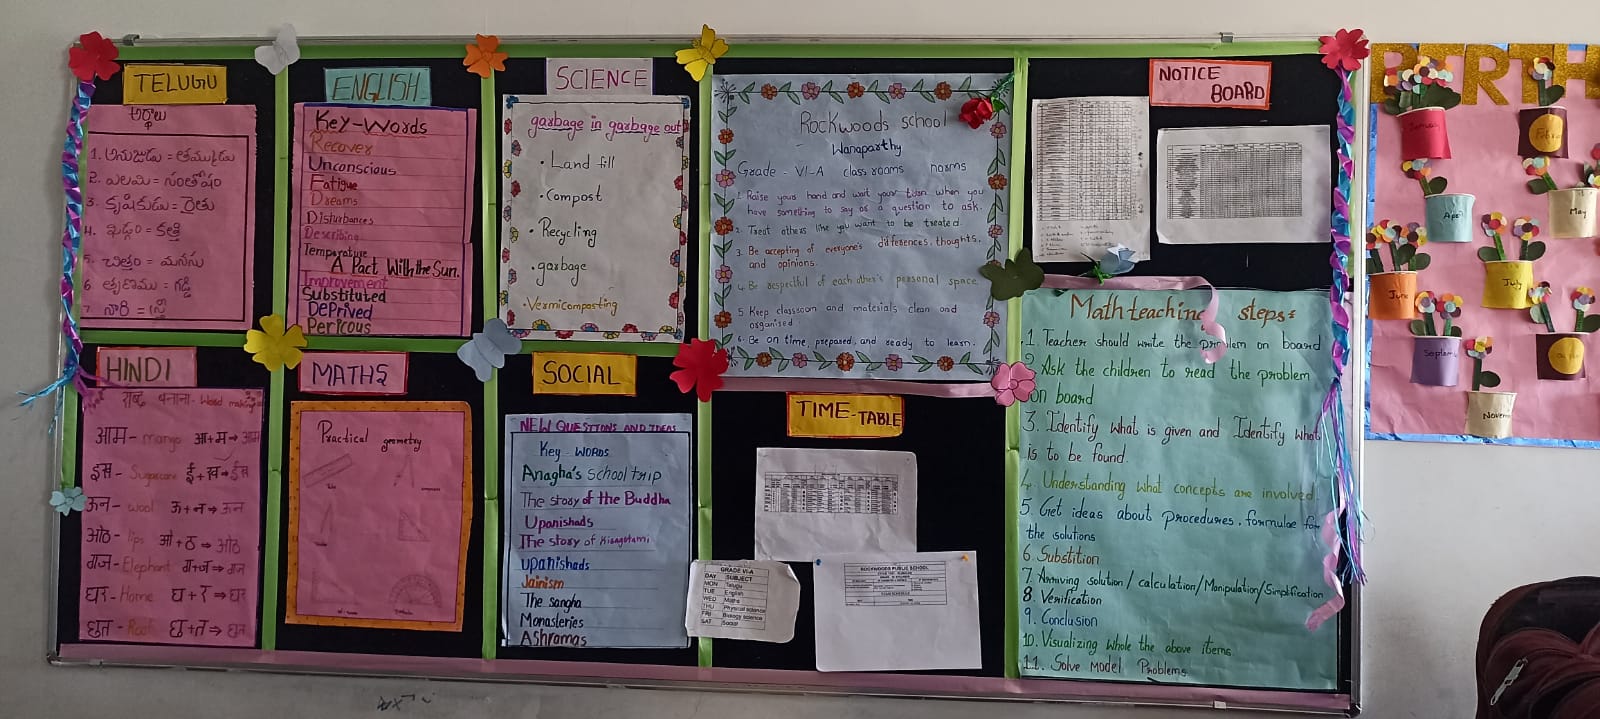 TELUGU
అర్థాలు
1. అనుజుడు = తమ్ముడు
2. ఎలమి = సంతోషం
3. కృషికుడు = రైతు
4. ఖడ్గం = కత్తి
5. చిత్తం = మనసు
6. తృణము = గడ్డి
7. నారి = స్త్రీ
ENGLISH
Key-Words
Recover
Unconscious
Fatigue
Dreams
Disturbances
Describing
Temperature
A Pact With the Sun.
Improvement
Substituted
Deprived
Pericous
SCIENCE
garbage in garbage out
• Land fill
• Compost
• Recycling
• garbage
• Vermicomposting
Rockwoods school
Wanaparthy
Grade - VI-A class rooms norms
1. Raise your hand and wait your turn when you
have something to say or a question to ask.
2. Treat others like you want to be treated.
3. Be accepting of everyone's differences, thoughts,
and opinions.
4. Be respectful of each other's personal space
5. Keep classroom and materials clean and
organised.
6. Be on time, prepared, and ready to learn.
NOTICE
BOARD
HINDI
शब्द बनाना - Word making
आम - mango आ+म → आम
ईख - Sugarcane ई+ख → ईख
ऊन - wool ऊ+न → ऊन
ओठ - lips ओ+ठ → ओठ
गज - Elephant ग+ज → गज
घर - Home घ+र → घर
छत - Roof छ+त → छत
MATHS
Practical geometry
SOCIAL
NEW QUESTIONS AND IDEAS
Key - WORDS
Anagha's School trip
The story of the Buddha
Upanishads
The story of Kisagotami
upanishads
Jainism
The sangha
Monasteries
Ashramas
TIME-TABLE
GRADE VI-A
DAY SUBJECT
MON Telugu
TUE English
WED Maths
THU Physical science
FRI Biology science
SAT Social
ROCKWOODS PUBLIC SCHOOL
Math teaching steps:
1. Teacher should write the problem on board
2. Ask the children to read the problem
on board
3. Identify what is given and Identify what
is to be found.
4. Understanding what concepts are involved.
5. Get ideas about procedures, formulae for
the solutions
6. Substition
7. Arriving solution / calculation/Manipulation/Simplification
8. Verification
9. Conclusion
10. Visualizing whole the above items
11. Solve model Problems
BIRTH
January
April
May
June
July
November